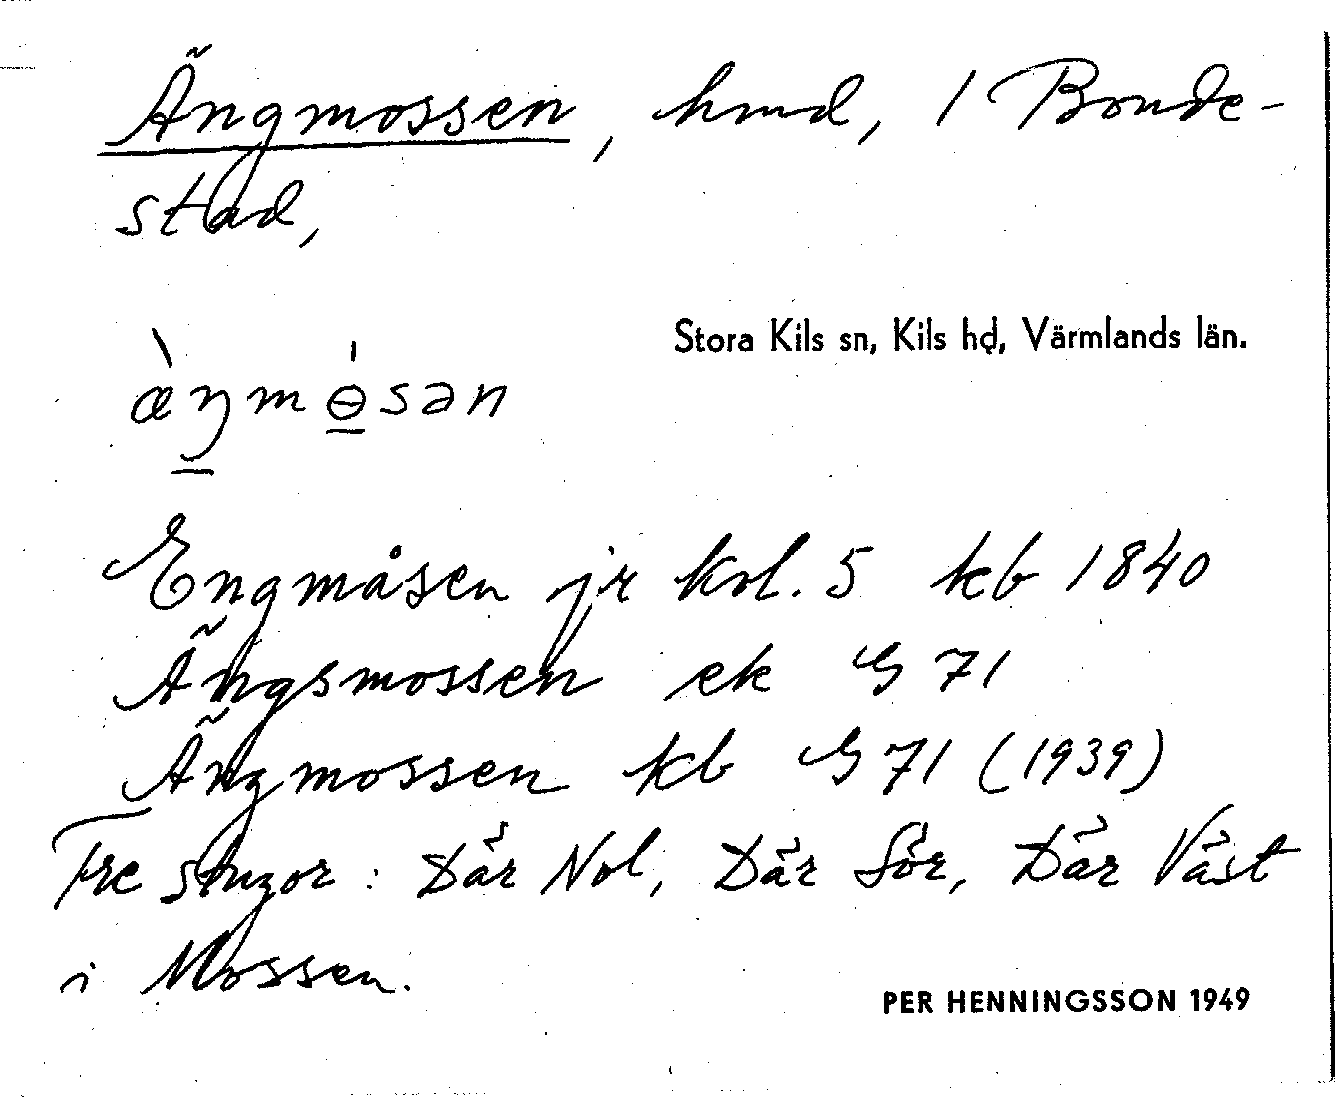 Ängmossen, hmd, 1 Bonde-
stad,
Stora Kils sn, Kils hd, Värmlands län.
æ̀ŋmɵ́sən
Engmåsen jr kol. 5 kb 1840
Ängsmossen ek G 71
Ängmossen kb G 71 (1939)
Tre stugor: Där Nol, Där Sör, Där Väst
i Mossen.
PER HENNINGSSON 1949